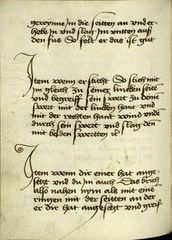 in die seitten an und er
hebe in und slag im mitten auff
den fus so felt er das ist gut
Item wenn er sticht So stich mit
im gleich zu seiner lincken seite
und begreiff sein swert zu dem
swert mit der lincken hant und
mit der rechten hant wind unde
durch sein swert und slag den
mit beiden swertten
Item wenn dir einer hat ange
setzt und du im auch Das bruch
also nahen nym als mit eine
ringen mit der seitten an der
er dir hat angesetzt und greif